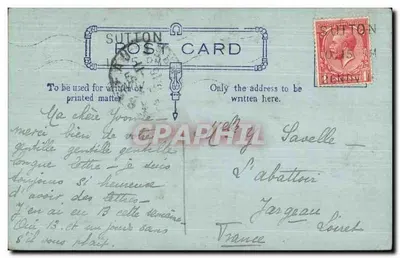 SUTTON
SUTTON
POST CARD
To be used for written or
printed matter
Only the address to be
written here.
CPAPHIL.com
Ma chère Yvonne
merci bien de
gentille gentille gentille
longue lettre - je suis
toujours si heureuse
d'avoir des lettres
J'en ai eu 13 cette semaine
Oui 13. et un jours sans
s'il vous plait.
Savelle
L'abattoir
Jargeau
Loiret
France